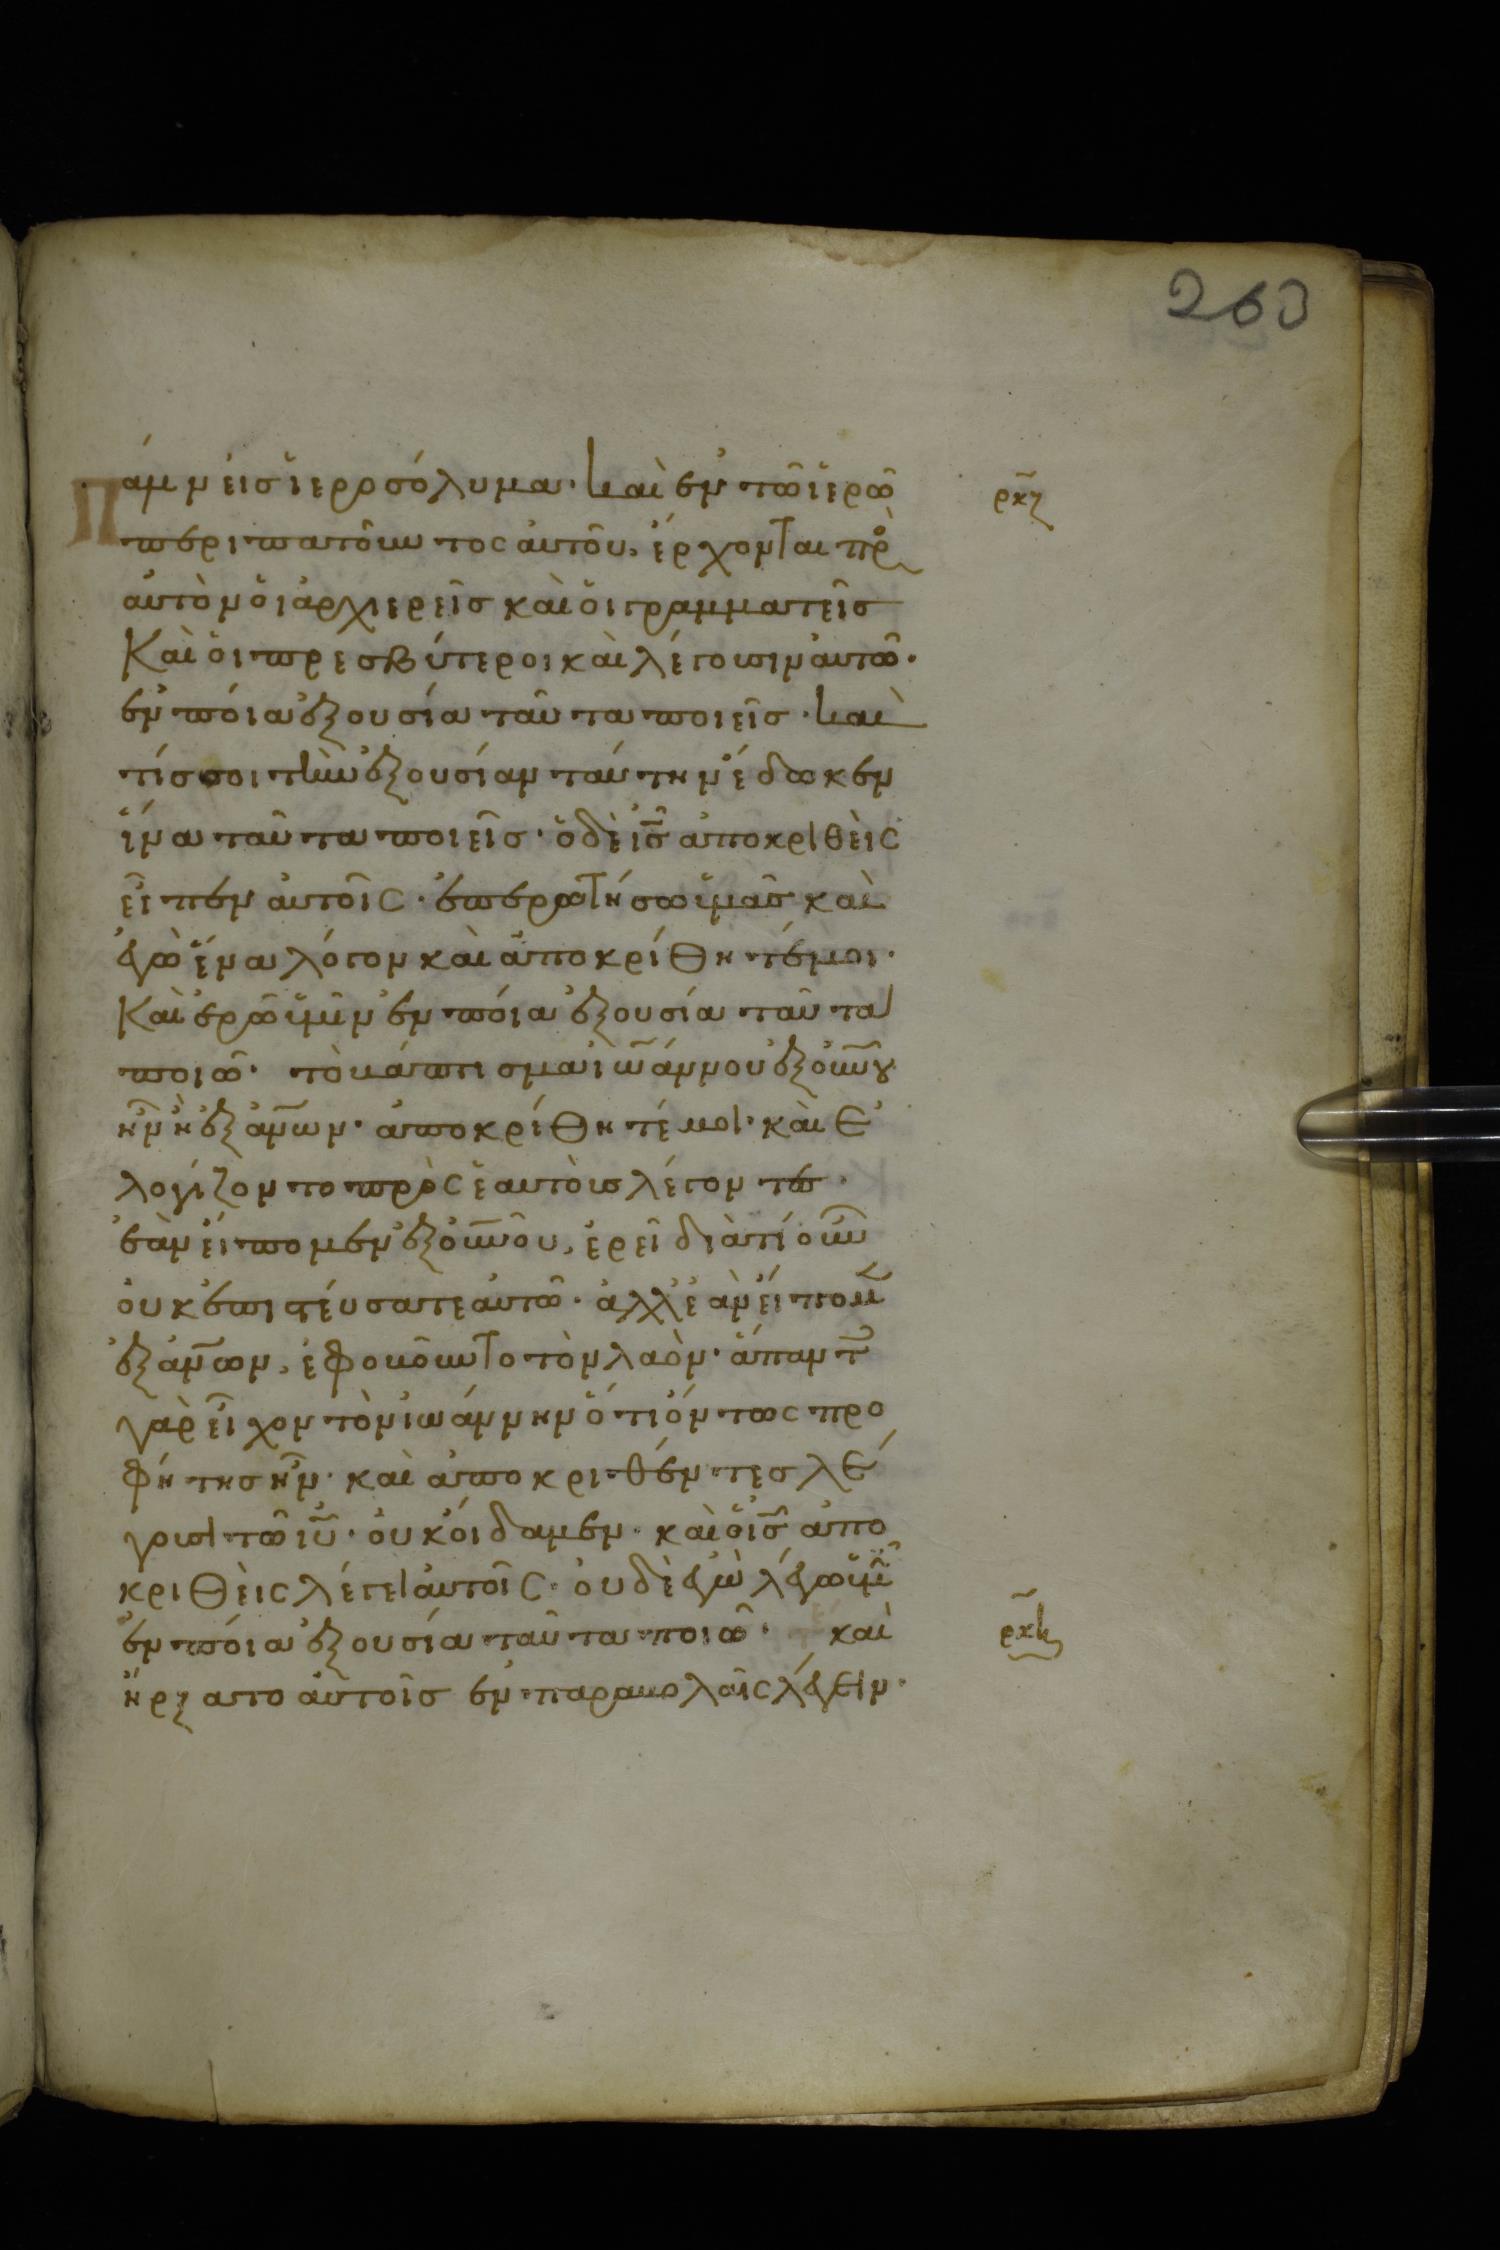 260
άλιν εἰς ἱεροσόλυμα· καὶ ἐν τῶ ἱερῶ ρκζ
Περιπατοῦντος αὐτοῦ, ἔρχονται πρὸς
αὐτὸν οἱ ἀρχιερεῖς καὶ οἱ γραμματεῖς
Καὶ οἱ πρεσβύτεροι καὶ λέγουσιν αὐτῶ·
ἐν ποία ἐξουσία ταῦτα ποιεῖς· καὶ
τίς σοι τὴν ἐξουσίαν ταύτην ἔδωκεν
ἵνα ταῦτα ποιεῖς· ὁ δὲ ἰς̅ ἀποκριθεὶς
εἶπεν αὐτοῖς· ἐπερωτήσω ὑμᾶς καὶ
ἐγὼ ἕνα λόγον καὶ ἀποκρίθητέ μοι·
Καὶ ἐρῶ ὑμῖν ἐν ποία ἐξουσία ταῦτα
ποιῶ· τὸ βάπτισμα ἰω̅άννου ἐξ οὐν̅οῦ
ἦν ἢ ἐξ ἀν̅ων· ἀποκρίθητέ μοι· καὶ ἐ
λογίζοντο πρὸς ἑαυτοὺς λέγοντες·
ἐὰν εἴπομεν ἐξ οὐν̅οῦ, ἐρεῖ διὰ τί οὖν
οὐκ ἐπιστεύσατε αὐτῶ· ἀλλ' ἐὰν εἴπομεν
ἐξ ἀν̅ων, ἐφοβοῦντο τὸν λαὸν· ἅπαντες
γὰρ εἶχον τὸν ἰωάννην ὅτι ὄντως προ
φήτης ἦν· καὶ ἀποκριθέντες λέ
γουσι τῶ ἰυ̅· οὐκ οἴδαμεν· καὶ ὁ ἰς̅ ἀπο
κριθεὶς λέγει αὐτοῖς· οὐδὲ ἐγὼ λέγω ὑμῖν
ἐν ποία ἐξουσία ταῦτα ποιῶ· καὶ ρκη
ἤρξατο αὐτοῖς ἐν παραβολαῖς λέγειν·